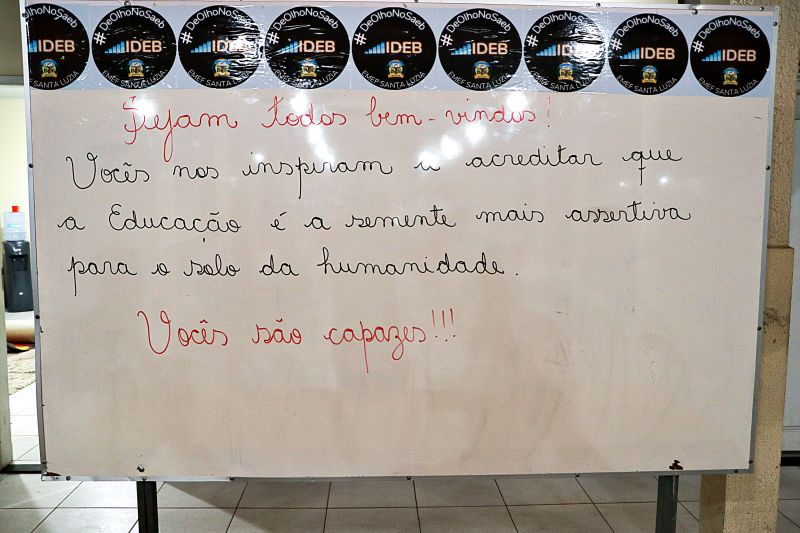 #DeOlhoNoSaeb #DeOlhoNoSaeb #DeOlhoNoSaeb #DeOlhoNoSaeb #DeOlhoNoSaeb #DeOlhoNoSaeb #DeOlhoNoSaeb #DeOlhoNoSaeb #DeOlhoNoSaeb
IDEB IDEB IDEB IDEB IDEB IDEB IDEB IDEB IDEB
EMEF SANTA LUZIA EMEF SANTA LUZIA EMEF SANTA LUZIA EMEF SANTA LUZIA EMEF SANTA LUZIA EMEF SANTA LUZIA EMEF SANTA LUZIA EMEF SANTA LUZIA EMEF SANTA LUZIA
Sejam todos bem-vindos!
Vocês nos inspiram a acreditar que
a Educação é a semente mais assertiva
para o solo da humanidade.
Vocês são capazes!!!